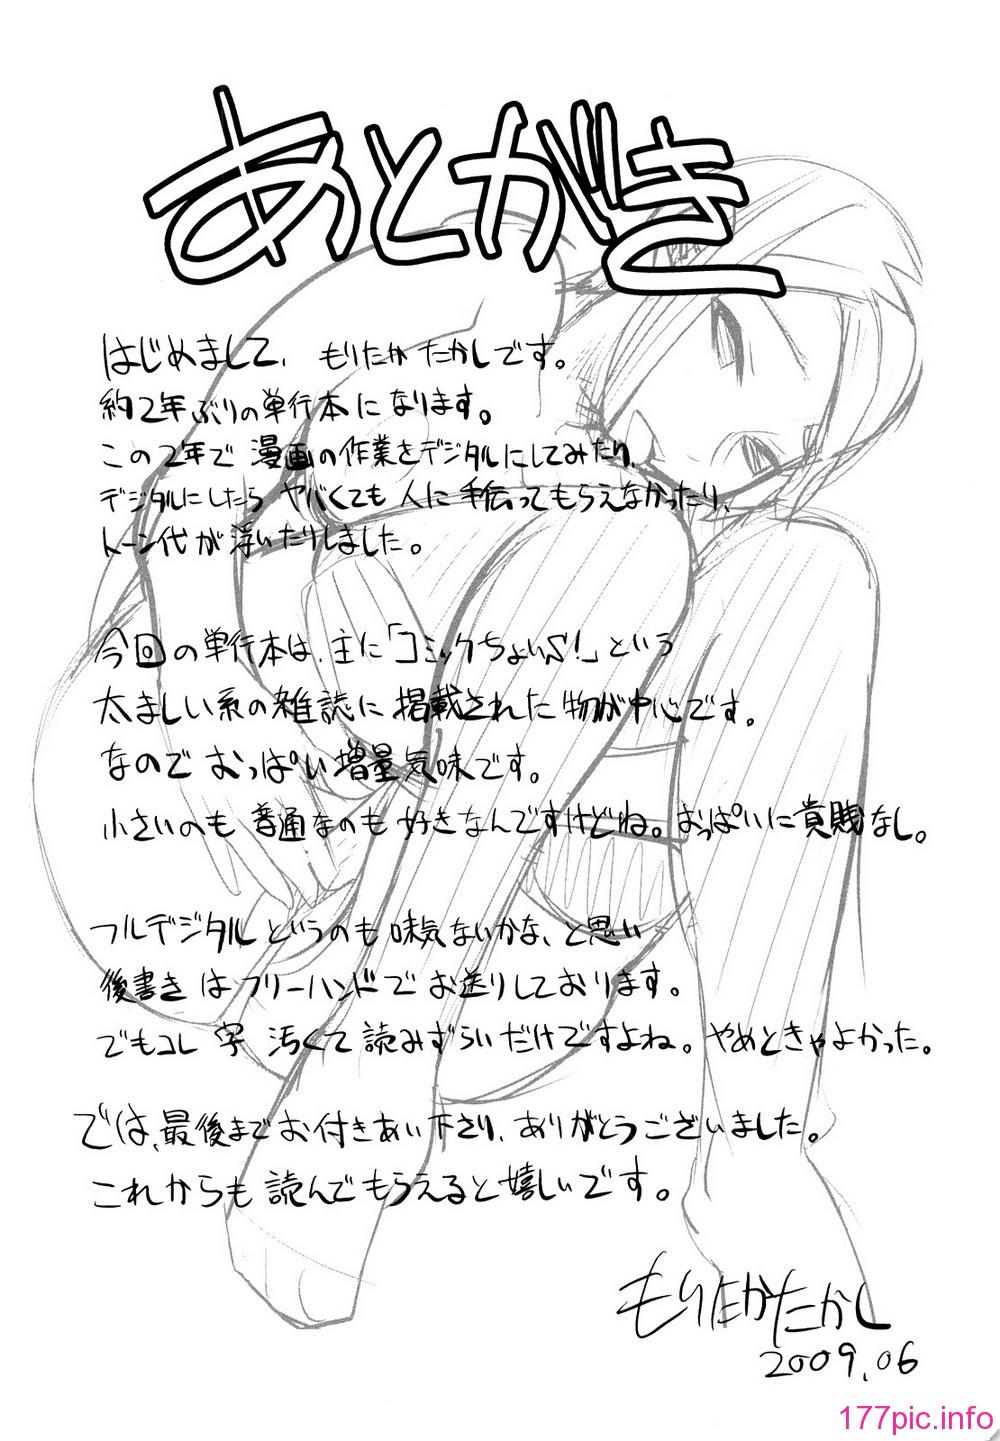 あとがき
はじめまして、もりたか たかしです。
約2年ぶりの単行本になります。
この2年で 漫画の作業をデジタルにしてみたり、
デジタルにしたら ヤバくても 人に 手伝ってもらえなかったり、
トーン代が浮いたりしました。
今回の単行本は、主に「コミックちょいS!」という
太ましい系の雑誌に 掲載された 物が中心です。
なので おっぱい増量気味です。
小さいのも 普通なのも 好きなんですけどね。おっぱいに貴賎なし。
フルデジタル というのも 味気ないかな、と思い
後書き はフリーハンドで お送りしております。
でもコレ 字 汚くて 読みずらいだけですよね。やめときゃよかった。
では、最後まで お付きあい 下さり、ありがとうございました。
これからも 読んで もらえると 嬉しいです。
もりたかたかし
2009.06
177pic.info